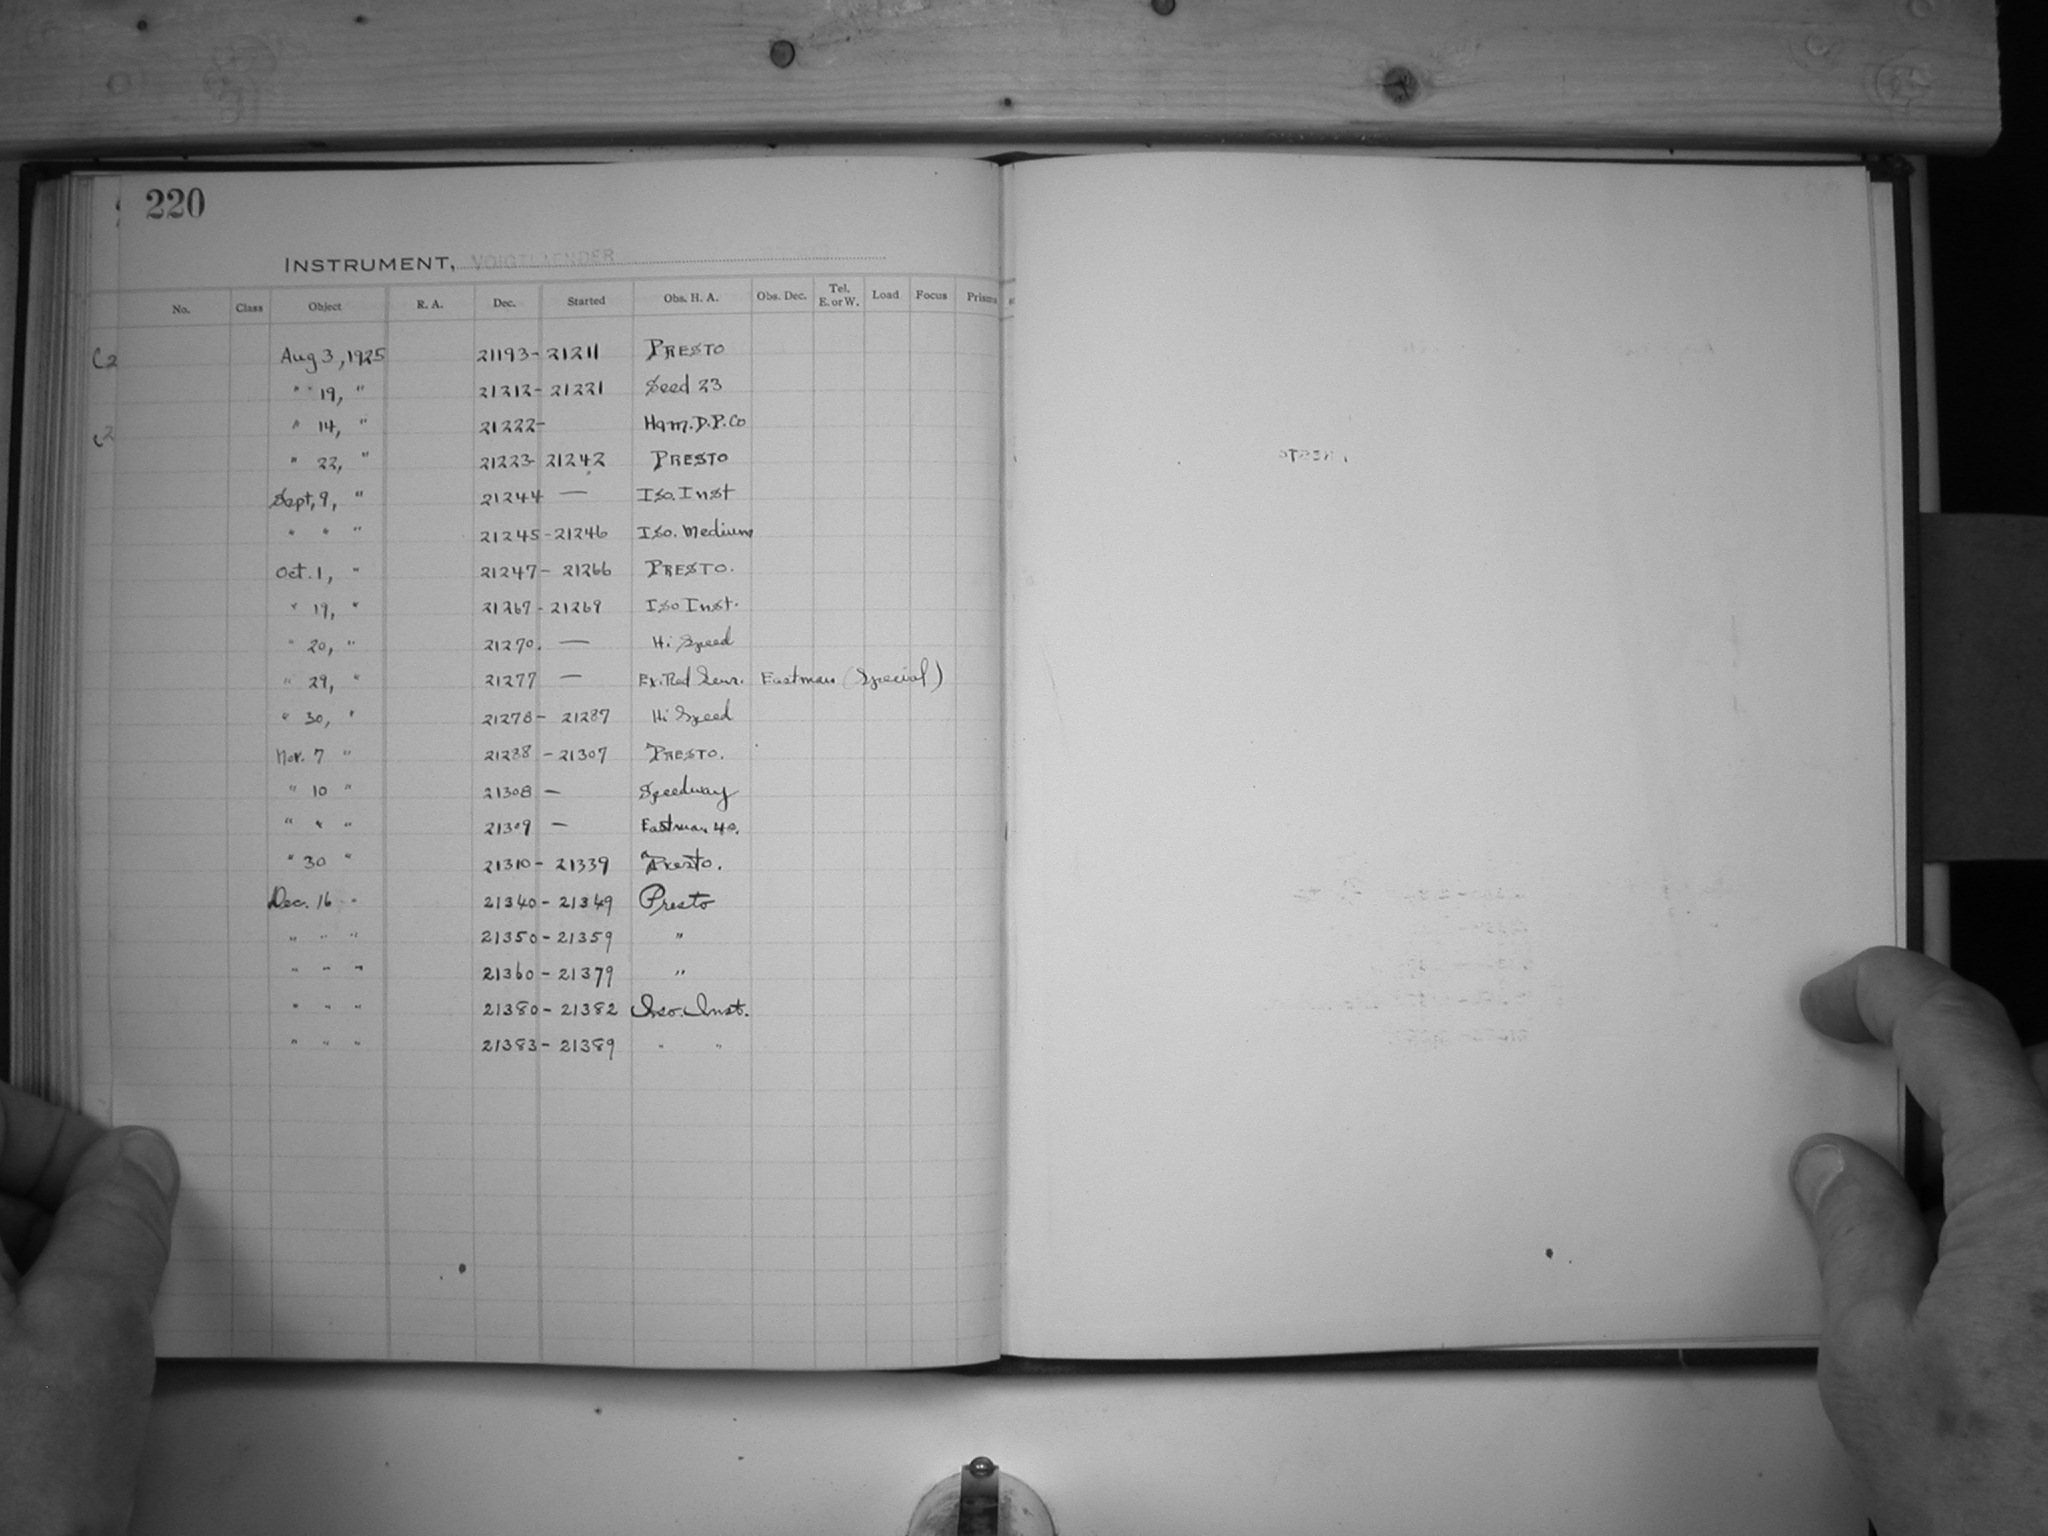 220
INSTRUMENT, VOIGTLAENDER
No. Class Object R. A. Dec. Started Obs. H. A. Obs. Dec. Tel. E. or W. Load Focus Prisms
Aug 3, 1925 21193- 21211 PRESTO
" " 19, " 21212- 21221 Seed 23
" 14, " 21222- Ham. D. P. Co
" 22, " 21223- 21242 PRESTO
Sept, 9, " 21244 — Iso. Inst
" " " 21245 - 21246 Iso. Medium
Oct. 1, " 21247 - 21266 PRESTO.
" 19, " 21267 - 21269 Iso Inst.
" 20, " 21270. — Hi Speed
" 29, " 21277 — Ex. Red Sens. Eastman (Special)
" 30, " 21278 - 21287 Hi Speed
Nov. 7 " 21288 - 21307 PRESTO.
" 10 " 21308 — Speedway
" " " 21309 — Eastman 40.
" 30 " 21310 - 21339 Presto.
Dec. 16 " 21340 - 21349 Presto
" " " 21350 - 21359 "
" " " 21360 - 21379 "
" " " 21380 - 21382 Iso. Inst.
" " " 21383 - 21389 " "